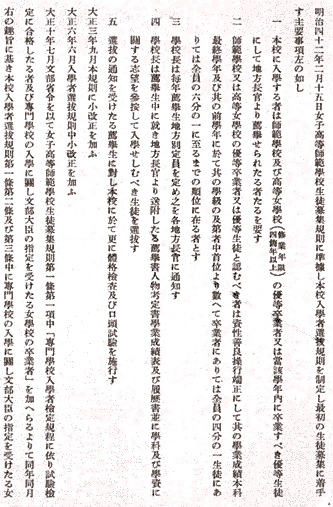 明治四十二年二月十五日女子高等師範學校生徒募集規則に準據し本校入學者選拔規則を制定し最初の生徒募集に着手
す主要事項左の如し
一 本校に入學する者は師範學校及び高等女學校(修業年限四箇年以上)の優等卒業者又は當該學年內に卒業すべき優等生徒
にして地方長官より薦擧せられたる者たるを要す
二 師範學校又は高等女學校の優等卒業者又は優等生徒と認むべき者は資性善良操行端正にして其の學業成績本科
最終學年及其の前學年に於て其の學級の及第者中首位より數へて卒業者にありては全員の四分の一生徒にあ
りては全員の六分の一に至るまでの順位に在る者とす
三 學校長は每年薦擧生地方別定員を定め之を各地方長官に通知す
四 學校長は薦擧生中に就き地方長官より送附したる薦擧書人物考定書學業成績表及び履歷書並に學科及び學資に
關する志望を參按して入學せしむべき生徒を選拔す
五 選拔の通知を受けたる薦擧生に對し本校に於て更に體格檢査及び口頭試驗を施行す
大正三年九月本規則に小改正を加ふ
大正六年六月入學者選拔規則中小改正を加ふ
大正十年七月文部省令を以て女子高等師範學校生徒募集規則第一條第一項中「專門學校入學者檢定規程に依り試驗檢
定に合格したる者及び專門學校の入學に關し文部大臣の指定を受けたる女學校の卒業者」を加へらるよりて同年同月
右の趣旨に基き本校入學者選拔規則第一條第二條及び第三條中に專門學校の入學に關し文部大臣の指定を受けたる女